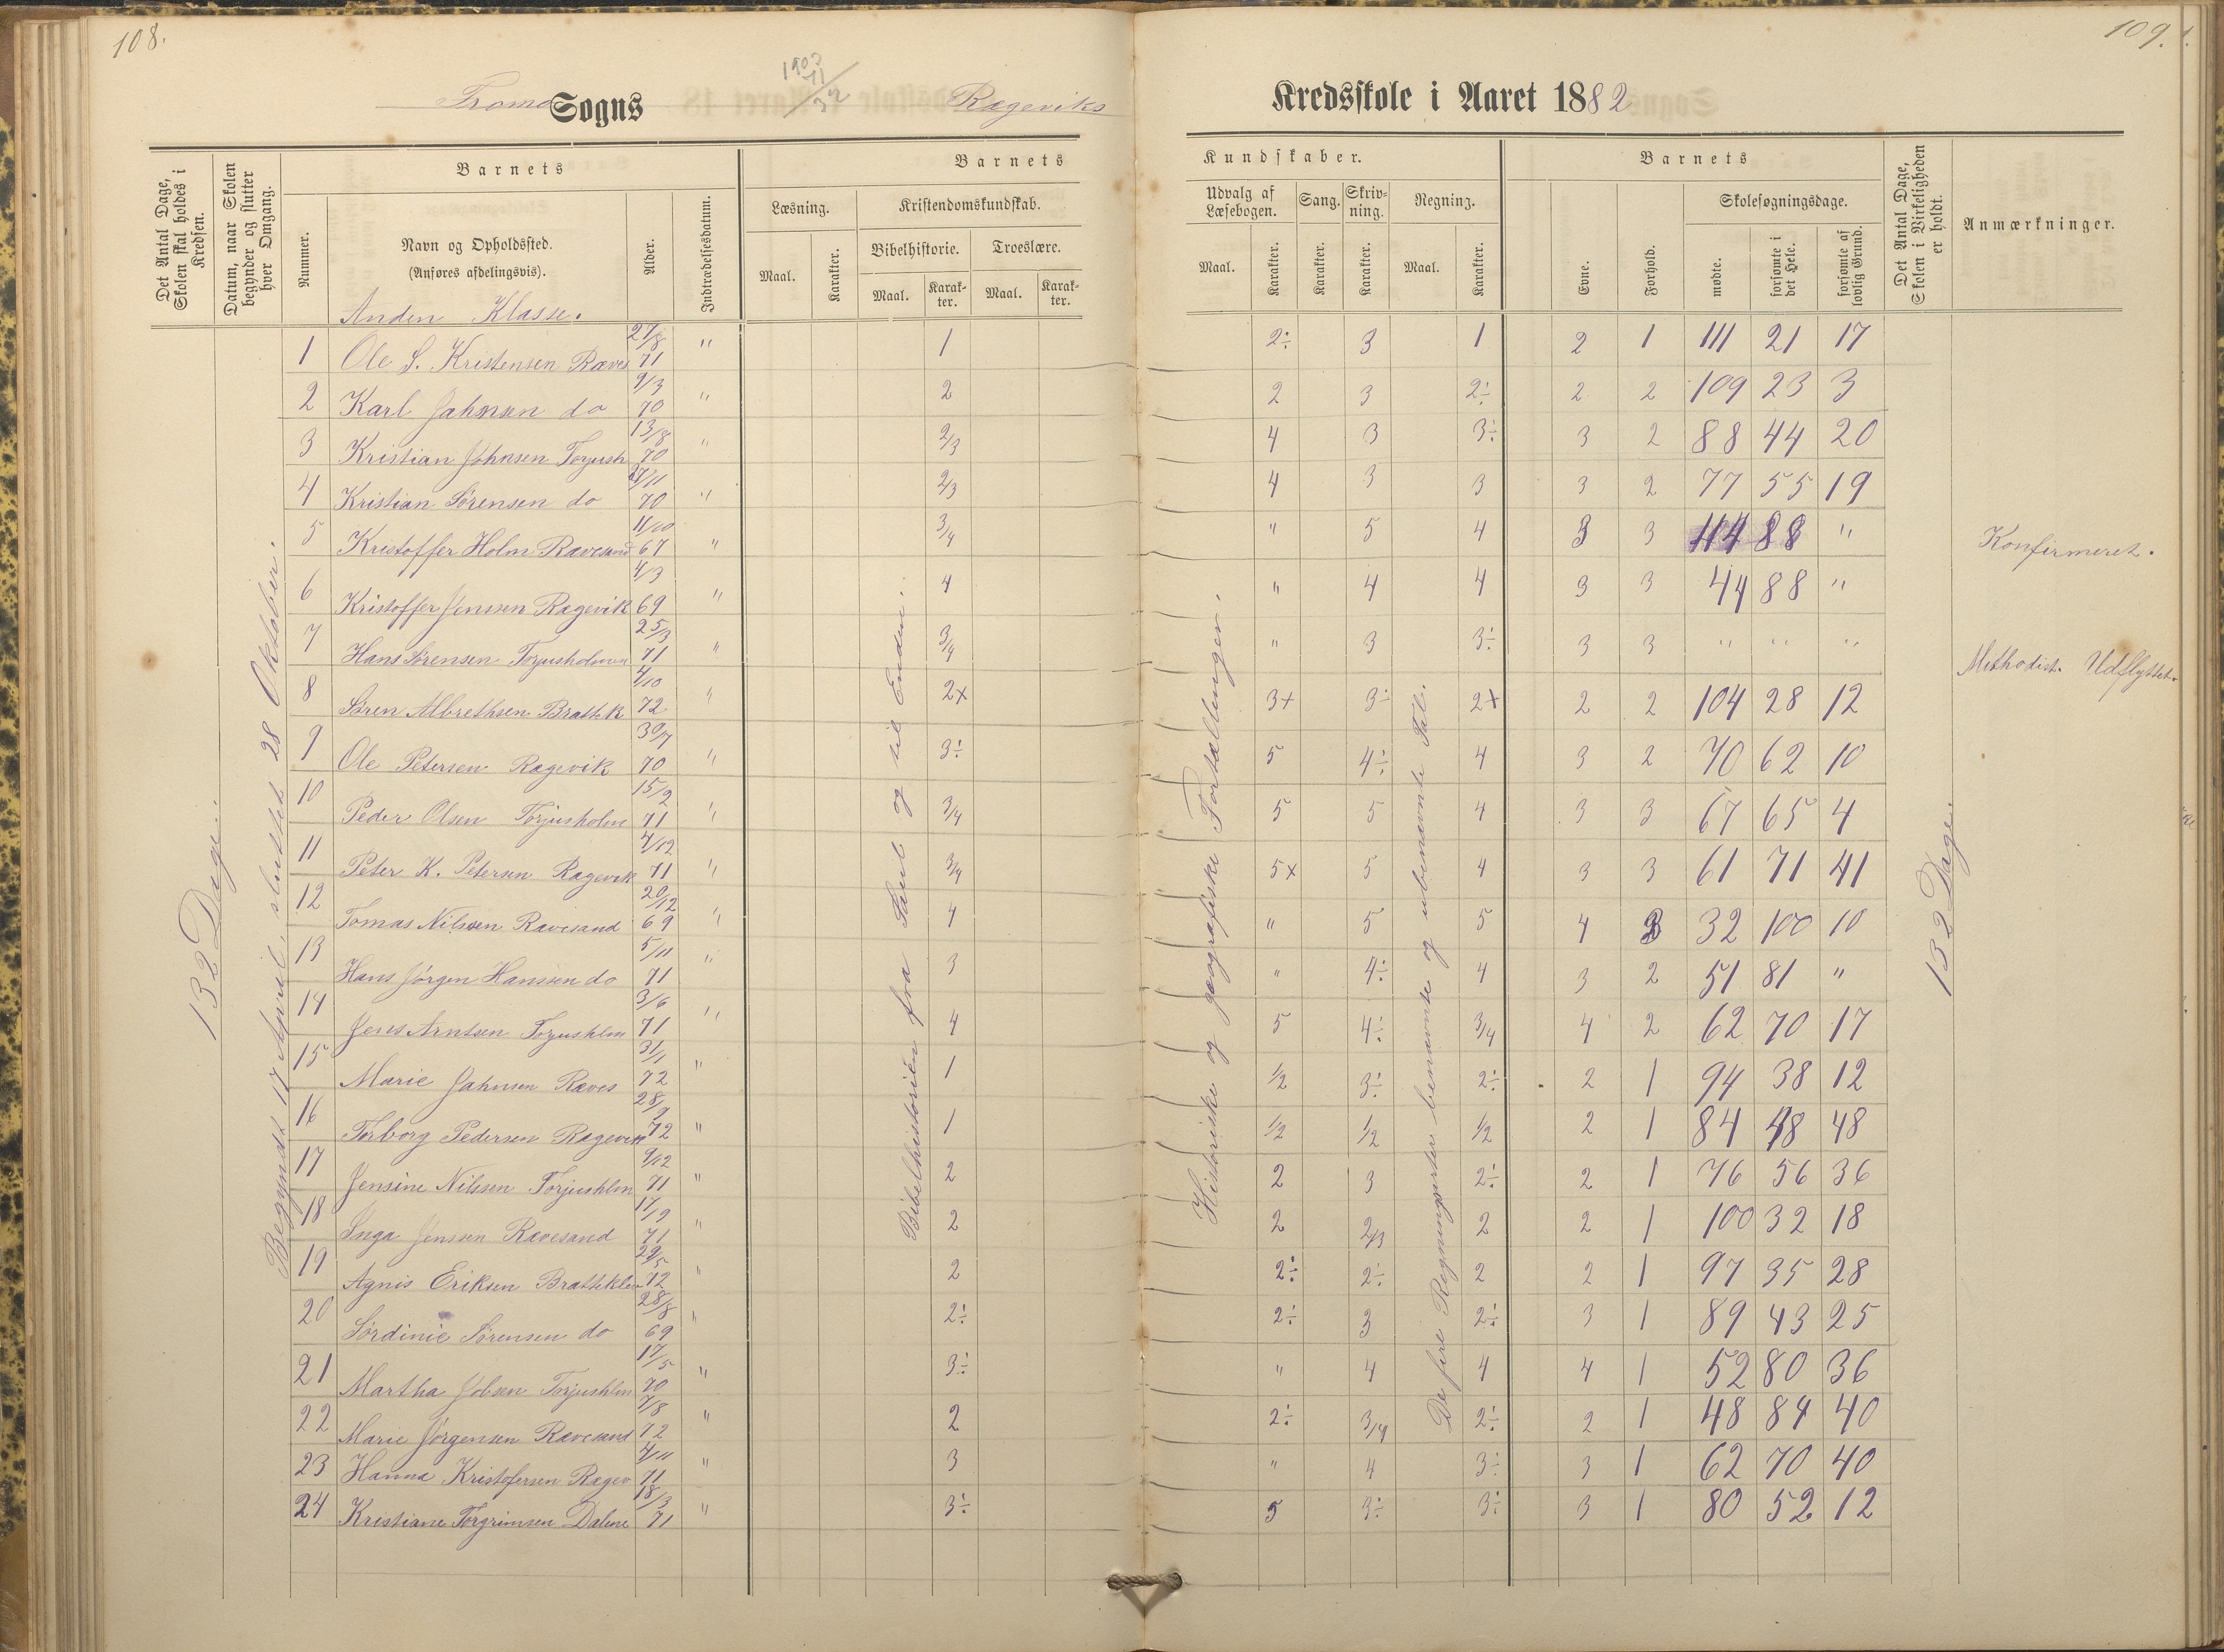 108.
109.
Tromø Sogns Rægeviks Kredsskole i Aaret 1882
1903
Det Antal Dage, Skolen skal holdes i Kredsen.
Datum, naar Skolen begynder og slutter hver Omgang.
Barnets
Nummer.
Navn og Opholdssted.
(Anføres afdelingsvis).
Alder.
Indtrædelsesdatum.
Barnets Kundskaber.
Læsning.
Maal.
Karakter.
Kristendomskundskab.
Bibelhistorie.
Maal.
Karakter.
Troeslære.
Maal.
Karakter.
Udvalg af Læsebogen.
Maal.
Karakter.
Sang.
Karakter.
Skrivning.
Karakter.
Regning.
Maal.
Karakter.
Barnets
Evne.
Forhold.
Skolesøgningsdage.
mødte.
forsømte i det Hele.
forsømte af lovlig Grund.
Det Antal Dage, Skolen i Virkeligheden er holdt.
Anmærkninger.
Anden Klasse.
132 Dage.
Begyndt 17 April, sluttet 28 Oktober.
Bibelhistorien fra Saul og til Enden.
Historiske og geografiske Fortællinger.
De fire Regningsarter benævnte og ubenævnte Tal.
132 Dage.
1 Ole S. Kristensen Ræves 27/8 71 " 1 2÷ 3 1 2 1 111 21 17
2 Karl Jahnsen do 9/3 70 " 2 2 3 2÷ 2 2 109 23 3
3 Kristian Johnsen Torjush 13/8 70 " 2/3 4 3 3÷ 3 2 88 44 20
4 Kristian Sørensen do 27/11 70 " 2/3 4 3 3 3 2 77 55 19
5 Kristoffer Holm Rævesand 11/10 67 " 3/4 " 5 4 3 3 44 88 " Konfirmeret.
6 Kristoffer Jensen Rægevik 4/3 69 " 4 " 4 4 3 3 44 88 "
7 Hans Sørensen Torjusholmen 25/3 71 " 3/4 " 3 3÷ 3 3 " " " Methodist. Udflyttet.
8 Søren Albrethsen Brattek 4/10 72 " 2+ 3+ 3÷ 2+ 2 2 104 28 12
9 Ole Petersen Rægevik 30/7 70 " 3÷ 5 4÷ 4 3 2 70 62 10
10 Peder Olsen Torjusholm 15/2 71 " 3/4 5 5 4 3 3 67 65 4
11 Peter K. Petersen Rægevik 4/12 71 " 3/4 5+ 5 4 3 3 61 71 41
12 Tomas Nilsen Rævesand 20/12 69 " 4 " 5 5 4 3 32 100 10
13 Hans Jørgen Hansen do 5/11 71 " 3 " 4÷ 4 3 2 51 81 "
14 Jens Arntsen Torjushlm 3/6 71 " 4 5 4÷ 3/4 4 2 62 70 17
15 Marie Jahnsen Ræves 31/1 72 " 1 1/2 3÷ 2÷ 2 1 94 38 12
16 Torborg Pedersen Rægevik 28/9 72 " 1 1/2 1/2 1/2 2 1 84 48 48
17 Jensine Nilsen Torjushlm 9/12 71 " 2 2 3 2÷ 2 1 76 56 36
18 Inga Jensen Rævesand 17/9 71 " 2 2 2/3 2 2 1 100 32 18
19 Agnis Eriksen Bratteklev 29/5 72 " 2 2÷ 2÷ 2 2 1 97 35 28
20 Sørdinie Sørensen do 28/8 69 " 2÷ 2÷ 3 2÷ 3 1 89 43 25
21 Martha Jobsen Torjushlm 17/5 70 " 3÷ " 4 4 4 1 52 80 36
22 Marie Jørgensen Rævesand 7/8 72 " 2 2÷ 3/4 2÷ 2 1 48 84 40
23 Hanna Kristofersen Rægev 4/11 71 " 3 " 4 3÷ 3 1 62 70 40
24 Kristiane Torgrimsen Dalene 18/3 71 " 3÷ 5 3÷ 3÷ 3 1 80 52 12